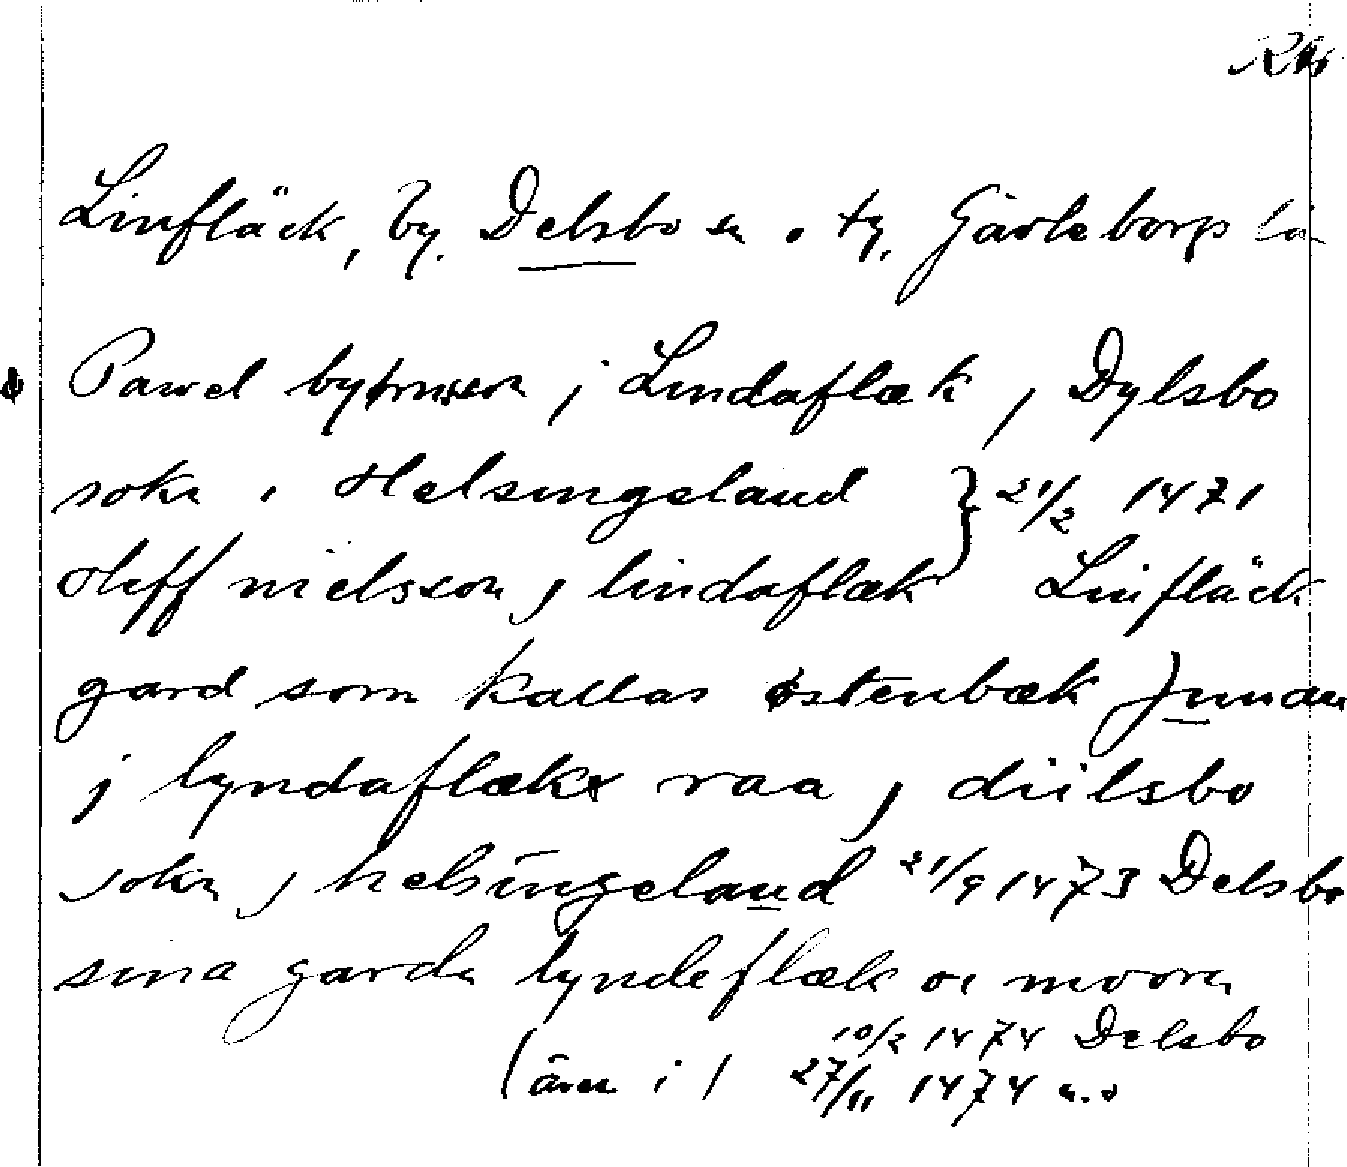 Linfläck, by. Delsbo sn o. tg. Gävleborgs län
Pawel bysmen j Lindaflæk j Dylsbo
sokn i Helsingeland } 21/2 1471
Oleff nielsson j lindaflæk Linfläck
gard som kallas østenbæk
j lyndaflækx raa j diilsbo
sokn j helsingeland 21/9 1473 Delsbo
sina garda lyndeflæk oc moora
10/2 1474 Delsbo
(även i) 27/11 1474